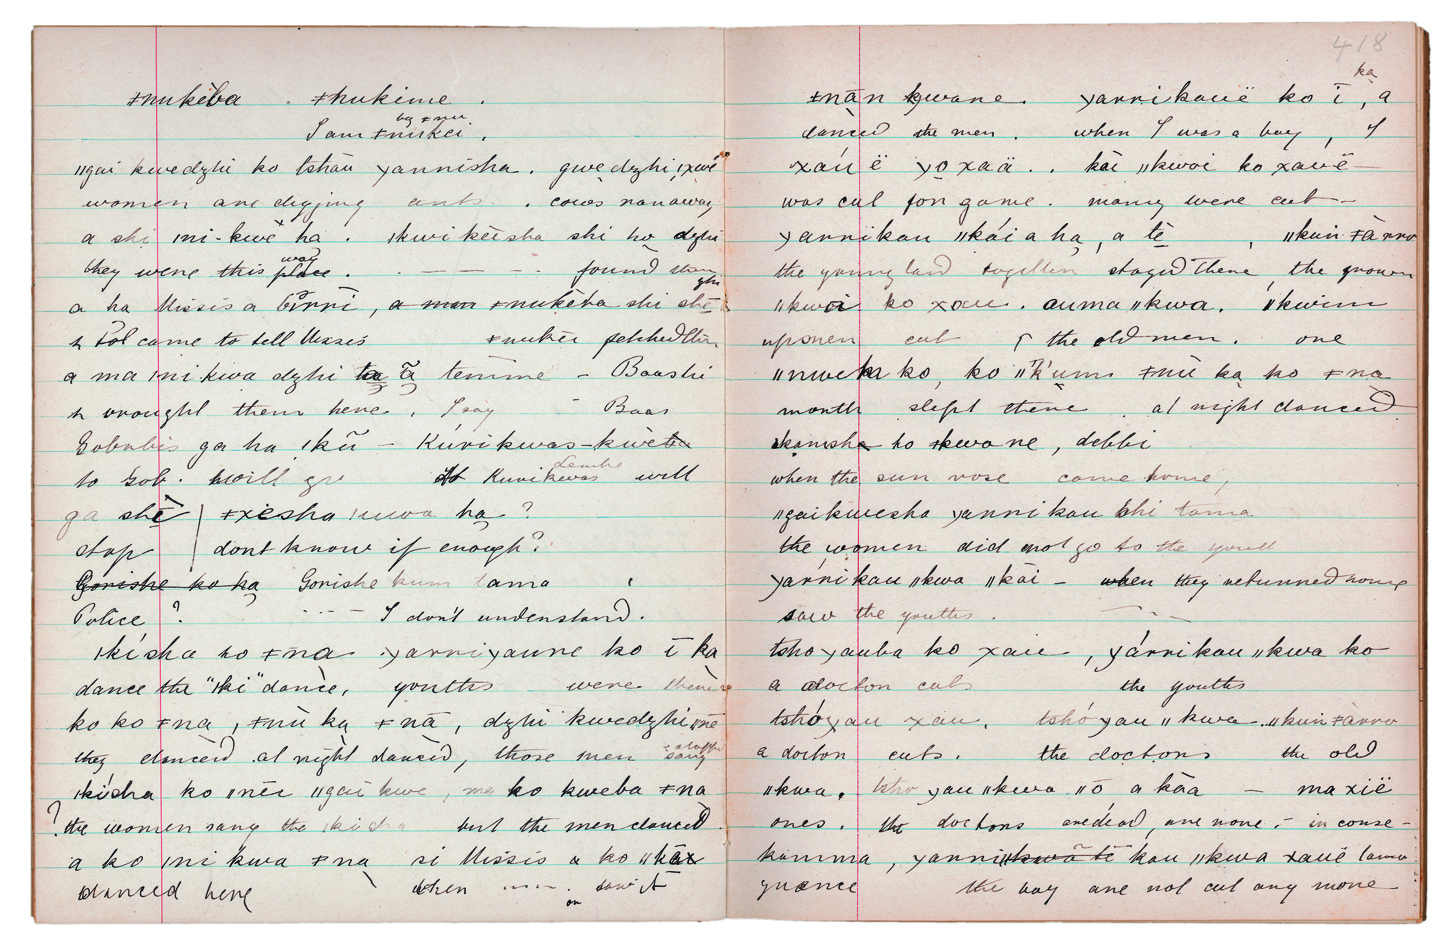 ǂnukeba . ǂnukime .
I am ǂnukei .
ǁgai kwedzhi ko tshāu yannisha . gwedzhi ǀxwe
women are digging ants . cows ran away
a shi ǀni-kwe ha . ǀkwikēisha shi ho dzhi
they were this place . — — — . found
way
a ha Missis a birri , a man ǂnukeba shi shē
& Pol came to tell Missis ǂnukei fetched them
a ma ǀni kwa dzhi ha ã temme – Baashi
& brought them here , I say - Baas
Gobabis ga ha ǀkū – Kurikwas-kwe
to Gob . will go Kurikwas will
ga shē | ǂxesha ha ?
stop | dont know if enough ?
Gorishe ko ha Gorishe kum tama
Police ? - - - I don't understand .
ǀkisha ho ǂna yanniyaune ko ī ka
dance the "ǀki" dance , youths were there
ko ko ǂna , ǂnū ka ǂnā , dzhi kwedzhi ǁne
they danced at night danced , those men sang
ǀkisha ko ǁnēi ǁgai kwe , me ko kweba ǂna
? the women sang the ǀkisha but the men danced
a ko ǀni kwa ǂna si Missis a ko
danced here when - - - . saw it
on
418
ka
ǂnān kwane . yannikauë ko ī , a
danced the men . when I was a boy , I
xauë yo xaä . . kai ǁkwoi ko xauë —
was cut for game . many were cut —
yannikau ǁkái a ha , a tē , ǁkun ǂarro
the young lad together stayed there , the grown
ǁkwa ko xau . auma ǁkwa . ǁkwim
up men cut the old men . one
ǁnweka ko , ko ǁk'um ǂnū ka ko ǂna
month slept there . at night danced
ho ǂkwane , debbi
when the sun rose come home ,
ǁgaikwesha yannikau shi tama
the women did not go to the youth
yannikau ǁkwa ǁkāi – when they returned home
saw the youths .
tshoyauba ko xau , yánnikau ǁkwa ko
a doctor cuts the youths
tshóyau xau , tshóyau ǁkwa . ǁkun ǂarro
a doctor cuts . the doctors the old
ǁkwa . tshoyau ǁkwa ǁō a kāa — maxië
ones . the doctors are dead , are none . – in conse-
kamma , yanni kau ǁkwa xauë tama
quence the boy are not cut any more